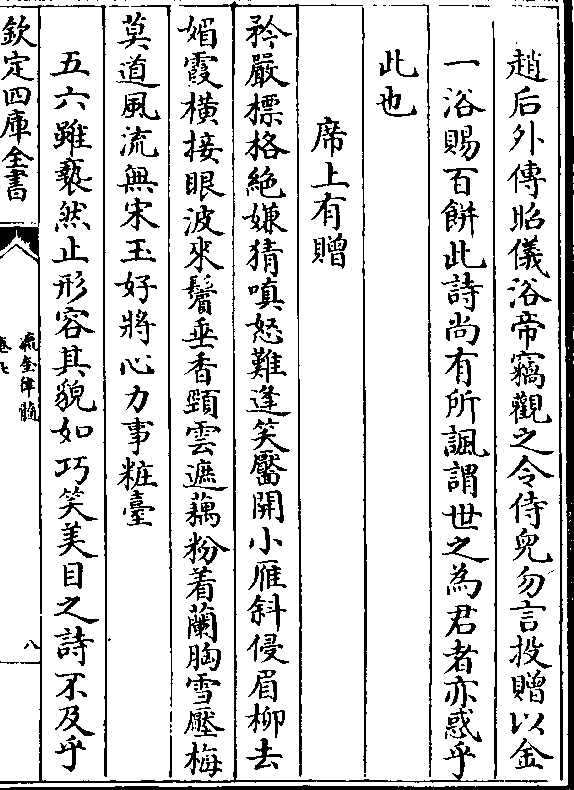 趙后外傳昭儀浴帝竊觀之令侍兒勿言投贈以金
一浴賜百餅此詩尚有所諷謂世之為君者亦惑乎
此也
席上有贈
矜嚴標格絶嫌猜嗔怒難逢笑靨開小雁斜侵眉柳去
媚霞橫接眼波來鬢垂香頸雲遮藕粉着蘭胸雪壓梅
莫道風流無宋玉好將心力事粧臺
五六雖褻然止形容其貌如巧笑美目之詩不及乎
欽定四庫全書
瀛奎律髓
卷七
八